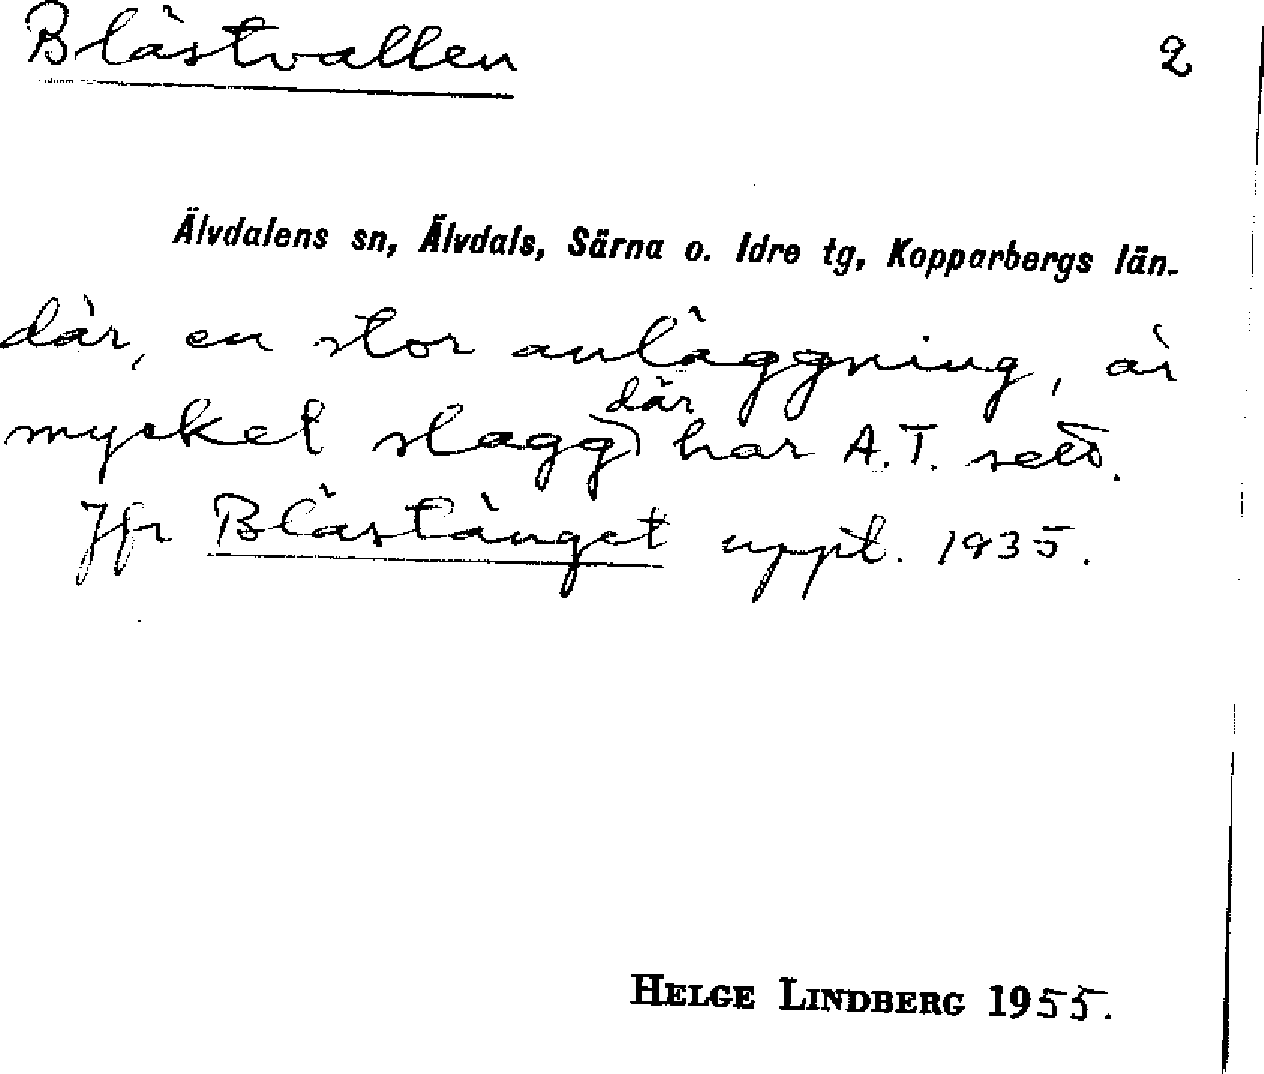 Blästvallen 2
Älvdalens sn, Älvdals, Särna o. Idre tg, Kopparbergs län.
där, en stor anläggning, är
där
mycket slagg har A.T. sett.
Jfr Blästänget uppt. 1935.
HELGE LINDBERG 1955.